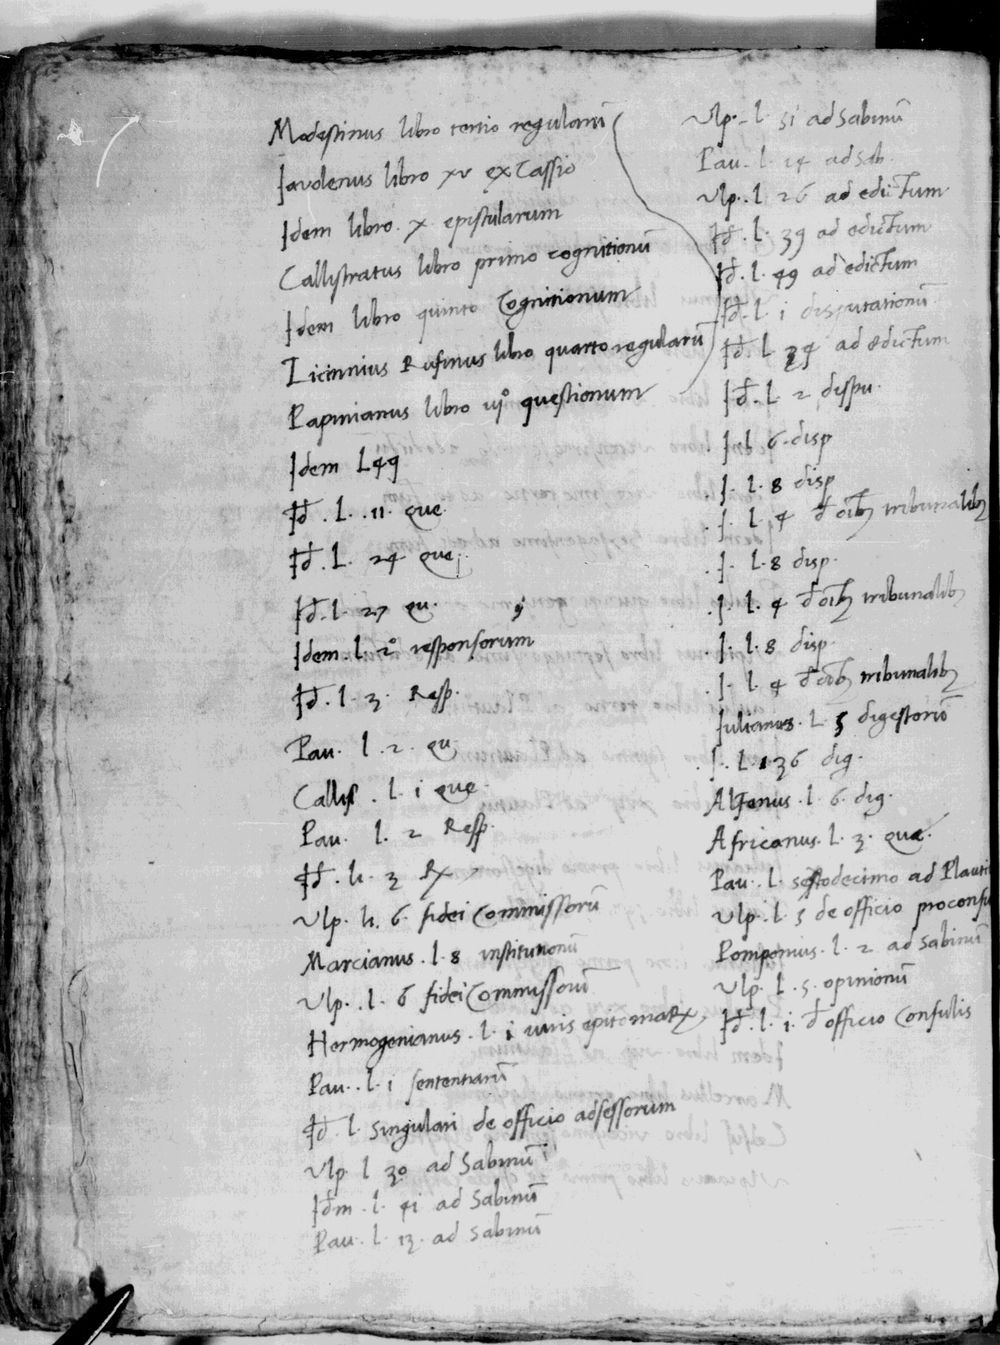 Modestinus libro tertio regularū
Javolenus libro xv ex Cassio
Idem libro x epistularum
Callistratus libro primo cognitionū
Idem libro quinto Cognitionum
Licinnius Rufinus libro quarto regularū
Papinianus libro iij° questionum
Idem L 49
Id. L. 11. que.
Id. L. 24 que
Id. l. 27 qu.
Idem. l. 2° responsorum
Id. l 3. Resp.
Pau. l. 2. qu
Callist. l. i que.
Pau. l. 2 Resp.
Id. li. 3 R
Ulp. li. 6. fidei Commissorū
Marcianus. l. 8 institutionū
Ulp. l. 6 fidei Commissorū
Hermogenianus. l. i iuris epitomaR
Pau. l. i sententiarū
Id. l. singulari de officio adsessorum
Ulp. l 30 ad Sabinū
Idm. l. 41 ad Sabinū
Pau. l. 13. ad Sabinū
Ulp. l. 51 ad Sabinū
Pau. l. 14 ad Sab.
Ulp. l. 26 ad edictum
Id. l. 39 ad edictum
Id. l. 49 ad edictum
Id. l. i disputationū
Id. l 34 ad edictum
Id. l. 2 dispu.
I. l. 6. disp
I. l. 8 disp
I. l. 4 d oīb tribunalib
I. l. 8 disp.
I. l. 4 d oīb tribunalib
I. l. 8 disp.
I. l. 4 d oīb tribunalib
Iulianus. l. 5 digestorū
I. L. 36 dig.
Alfenus. l. 6. dig.
Africanus. l. 3. que.
Pau. l. septodecimo ad Plauti
Ulp. l. 5 de officio proconsu
Pomponius. l. 2 ad Sabinū
Ulp. l. 5. opinionū
Id. l. i. d officio Consulis